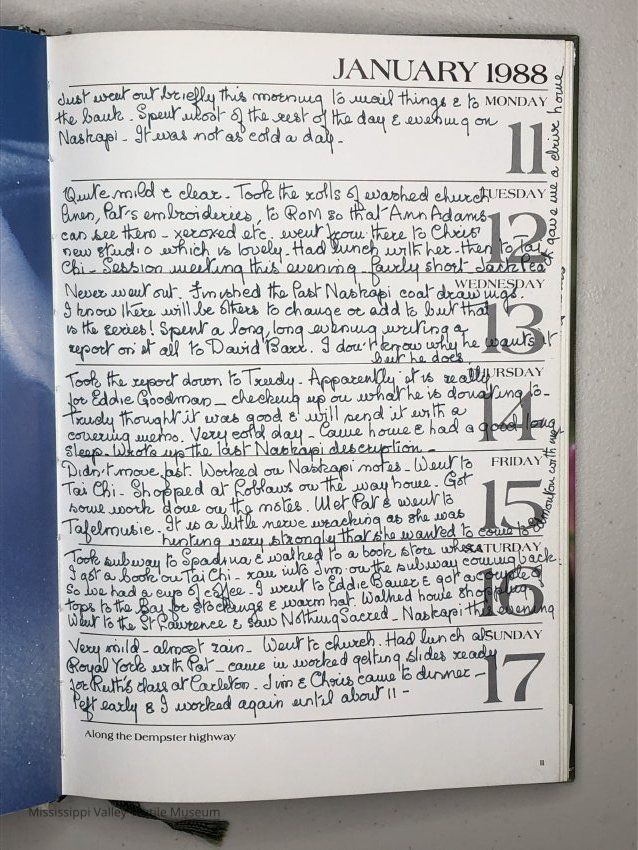 JANUARY 1988
MONDAY
11
Just went out briefly this morning to mail things & to
the bank - Spent most of the rest of the day & evening on
Naskapi - It was not as cold a day -
TUESDAY
12
Quite mild & clear - Took the rolls of washed church
linen, Pat's embroideries, to ROM so that Ann Adams
can see them - xeroxed etc. went from there to Chris'
new studio which is lovely - Had lunch with her - then to Tai
Chi - Session meeting this evening - fairly short - Jack Pea
gave me a drive home
WEDNESDAY
13
Never went out. Finished the last Naskapi coat drawings.
I know there will be others to change or add to but that
is the series! Spent a long, long evening writing a
report on it all to David Barr. I don't know why he wants it
but he does
THURSDAY
14
Took the report down to Trudy - Apparently it is really
for Eddie Goodman - checking up on what he is donating to -
Trudy thought it was good & will send it with a
covering memo. Very cold day - Came home & had a good long
sleep - Wrote up the last Naskapi description -
FRIDAY
15
Didn't move fast. Worked on Naskapi notes - Went to
Tai Chi - Shopped at Loblaws on the way home - Got
some work done on the notes. Met Pat & went to
Tafelmusic. It is a little nerve wracking as she was
hinting very strongly that she wanted to come to
Edmonton with me
SATURDAY
16
Took subway to Spadina & walked to a book store where
I got a book on Tai Chi - ran into Jim on the subway coming back
So we had a cup of coffee - I went to Eddie Bauer & got a couple of
tops to the Bay for stockings & warm hat. Walked home shopping
Went to the St Lawrence & saw Nothing Sacred - Naskapi this evening
SUNDAY
17
Very mild - almost rain - Went to church. Had lunch at
Royal York with Pat - came in worked getting slides ready
for Ruth's class at Carleton - Jim & Chris came to dinner -
Left early & I worked again until about 11 -
Along the Dempster highway
11
Mississippi Valley Textile Museum